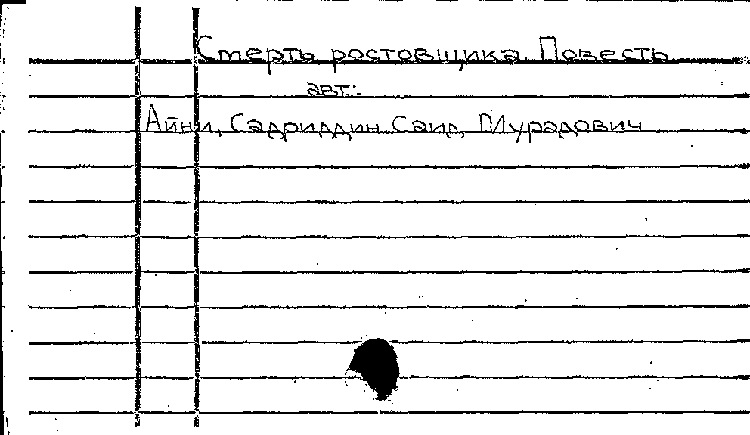 Смерть ростовщика. Повесть
авт.:
Айни, Садриддин Саид, Мурадович